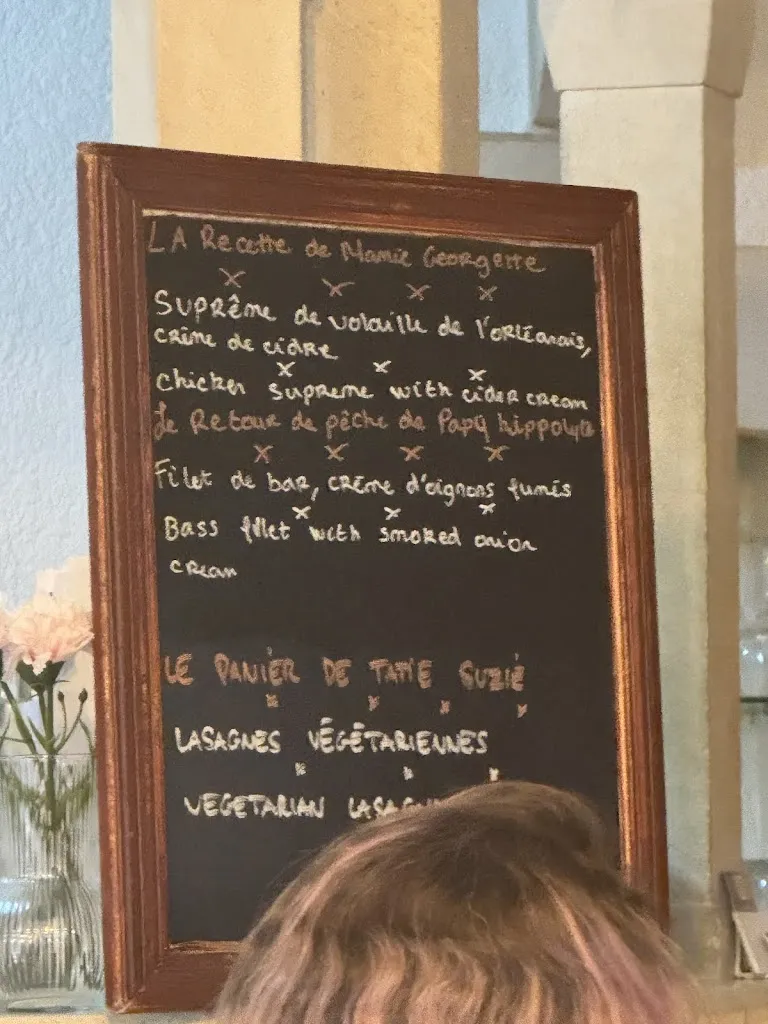 LA Recette de Mamie Georgette
x x x x
Suprême de volaille de l'orléanais,
crème de cidre
x x x
chicken supreme with cider cream
Le Retour de pêche de Papy hippolyte
x x x x
Filet de bar, crème d'oignons fumés
x x x
Bass fillet with smoked onion
cream
LE PANIER DE TATIE SUZIE
x x x x
LASAGNES VÉGÉTARIENNES
x x x
VEGETARIAN